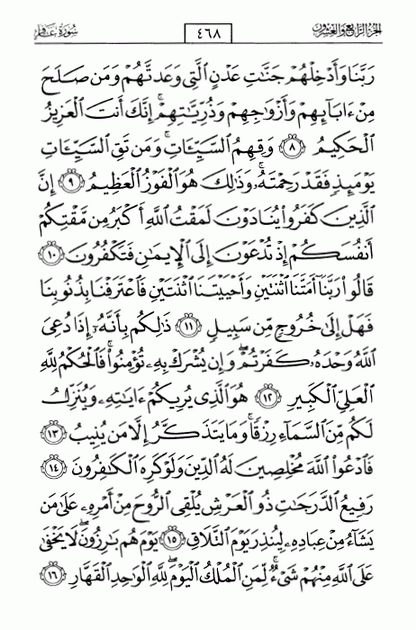 الجزء الرابع والعشرون ٤٦٨ سورة غافر
رَبَّنَا وَأَدْخِلْهُمْ جَنَّٰتِ عَدْنٍ ٱلَّتِى وَعَدتَّهُمْ وَمَن صَلَحَ
مِنْ ءَابَآئِهِمْ وَأَزْوَٰجِهِمْ وَذُرِّيَّٰتِهِمْ ۚ إِنَّكَ أَنتَ ٱلْعَزِيزُ
ٱلْحَكِيمُ ٨ وَقِهِمُ ٱلسَّيِّـَٔاتِ ۚ وَمَن تَقِ ٱلسَّيِّـَٔاتِ
يَوْمَئِذٍ فَقَدْ رَحِمْتَهُۥ ۚ وَذَٰلِكَ هُوَ ٱلْفَوْزُ ٱلْعَظِيمُ ٩ إِنَّ
ٱلَّذِينَ كَفَرُوا۟ يُنَادَوْنَ لَمَقْتُ ٱللَّهِ أَكْبَرُ مِن مَّقْتِكُمْ
أَنفُسَكُمْ إِذْ تُدْعَوْنَ إِلَى ٱلْإِيمَٰنِ فَتَكْفُرُونَ ١٠
قَالُوا۟ رَبَّنَآ أَمَتَّنَا ٱثْنَتَيْنِ وَأَحْيَيْتَنَا ٱثْنَتَيْنِ فَٱعْتَرَفْنَا بِذُنُوبِنَا
فَهَلْ إِلَىٰ خُرُوجٍ مِّن سَبِيلٍ ١١ ذَٰلِكُم بِأَنَّهُۥٓ إِذَا دُعِىَ
ٱللَّهُ وَحْدَهُۥ كَفَرْتُمْ ۖ وَإِن يُشْرَكْ بِهِۦ تُؤْمِنُوا۟ ۚ فَٱلْحُكْمُ لِلَّهِ
ٱلْعَلِىِّ ٱلْكَبِيرِ ١٢ هُوَ ٱلَّذِى يُرِيكُمْ ءَايَٰتِهِۦ وَيُنَزِّلُ
لَكُم مِّنَ ٱلسَّمَآءِ رِزْقًا ۚ وَمَا يَتَذَكَّرُ إِلَّا مَن يُنِيبُ ١٣
فَٱدْعُوا۟ ٱللَّهَ مُخْلِصِينَ لَهُ ٱلدِّينَ وَلَوْ كَرِهَ ٱلْكَٰفِرُونَ ١٤
رَفِيعُ ٱلدَّرَجَٰتِ ذُو ٱلْعَرْشِ يُلْقِى ٱلرُّوحَ مِنْ أَمْرِهِۦ عَلَىٰ مَن
يَشَآءُ مِنْ عِبَادِهِۦ لِيُنذِرَ يَوْمَ ٱلتَّلَاقِ ١٥ يَوْمَ هُم بَٰرِزُونَ ۖ لَا يَخْفَىٰ
عَلَى ٱللَّهِ مِنْهُمْ شَىْءٌ ۚ لِّمَنِ ٱلْمُلْكُ ٱلْيَوْمَ ۖ لِلَّهِ ٱلْوَٰحِدِ ٱلْقَهَّارِ ١٦